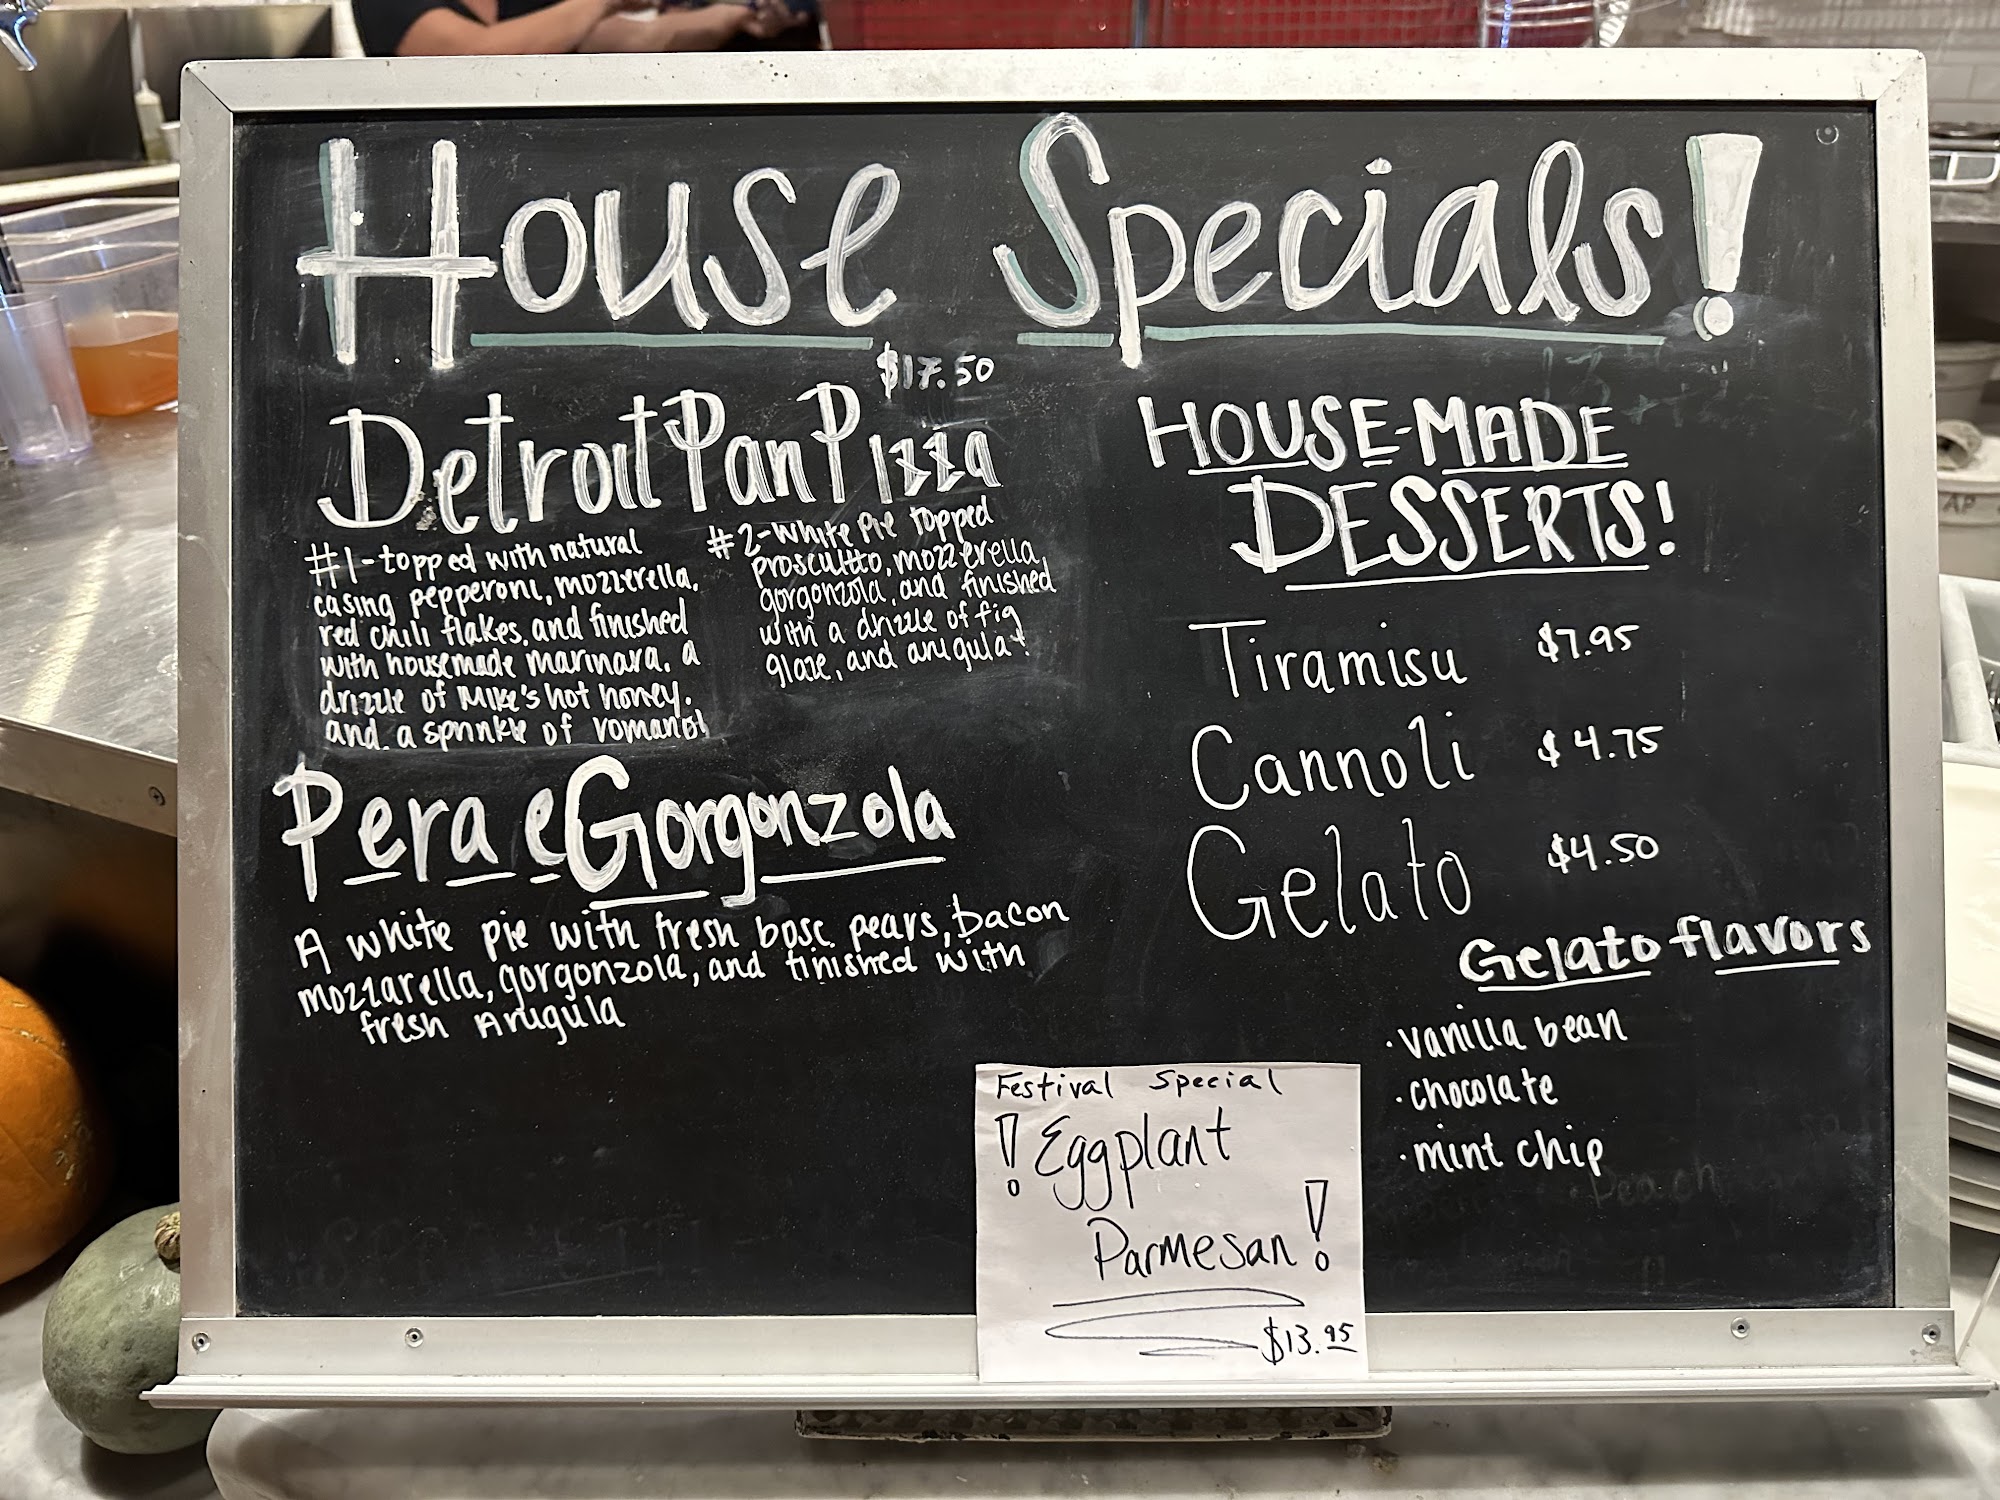 House Specials!
$17.50
Detroit Pan Pizza
#1-topped with natural
casing pepperoni, mozzerella,
red chili flakes, and finished
with housemade marinara, a
drizzle of Mike's hot honey,
and a sprinkle of romano!
#2-white pie topped
proscuitto, mozzerella,
gorgonzola, and finished
with a drizzle of fig
glaze, and arugula!
Pera e Gorgonzola
A white pie with fresh bosc pears, bacon
mozzarella, gorgonzola, and finished with
fresh Arugula
HOUSE-MADE
DESSERTS!
Tiramisu $7.95
Cannoli $4.75
Gelato $4.50
Gelato flavors
·vanilla bean
·chocolate
·mint chip
Peach
Festival Special
! Eggplant
Parmesan!
$13.95